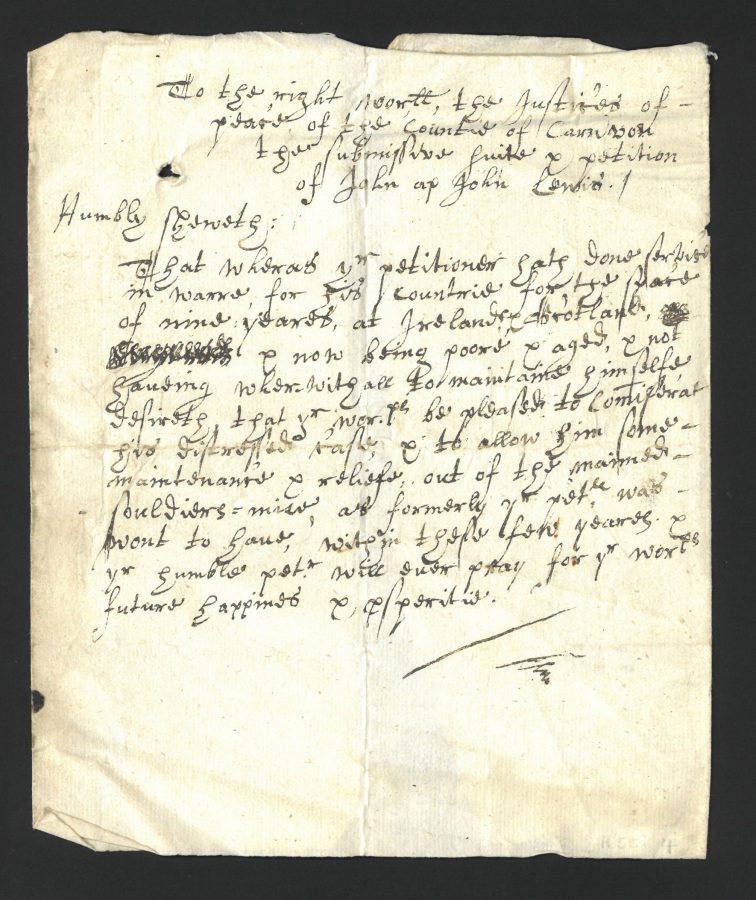 To the right worll, the Justices of -
peace of the Countie of Carnvon
the submissive suite & petition
of John ap John Lewis. /
Humbly Sheweth:
That wheras yr petitioner hath done service
in warre, for his Countrie for the space
of nine yeares, at Ireland, & Scotland,
& now being poore & aged, & not
haveing wher-withall to maintaine himselfe,
desireth, that yr worps be pleased to Comiserat
his distressed Case, & to allow him some -
maintenance & reliefe, out of the maimed -
souldiers = mise, as formerly yr petr was -
wont to have, within these few yeares. &
yr humble petr will ever pray for yr worps
future happines & psperitie.